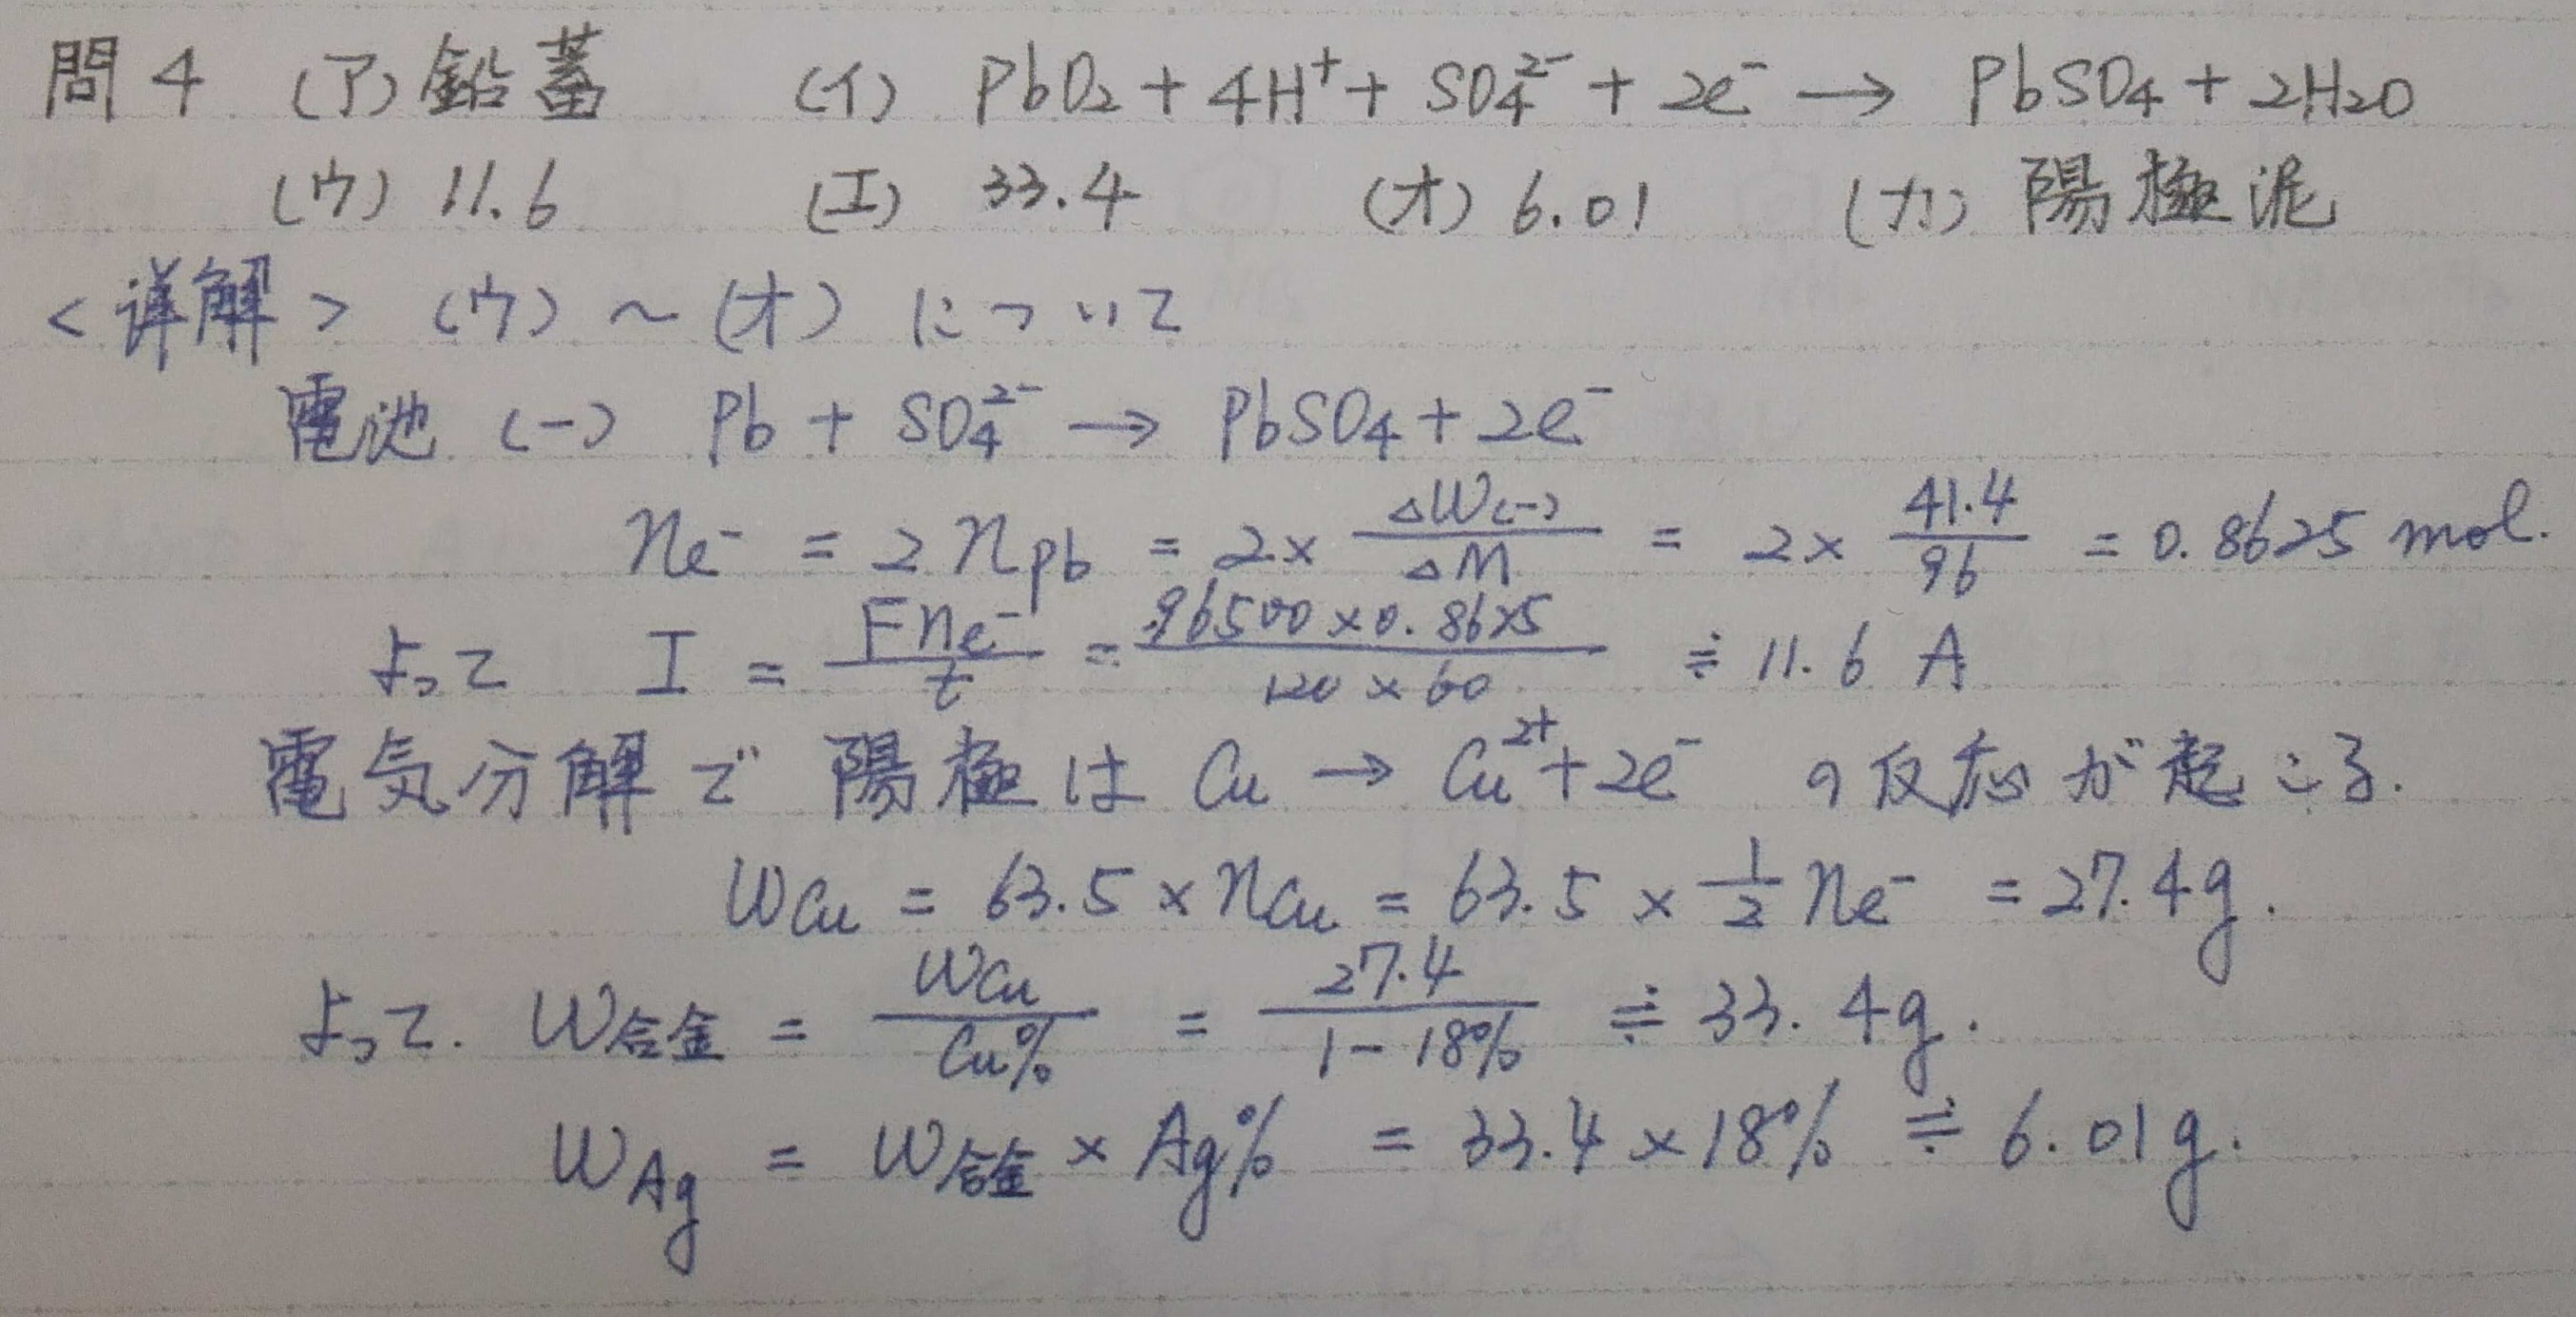 問4 (ア) 鉛蓄 (イ) PbO₂ + 4H⁺ + SO₄²⁻ + 2e⁻ → PbSO₄ + 2H₂O
(ウ) 11.6 (エ) 33.4 (オ) 6.01 (カ) 陽極泥
<详解> (ウ) ~ (オ) について
電池 (-) Pb + SO₄²⁻ → PbSO₄ + 2e⁻
n e⁻ = 2 n Pb = 2 × ΔW(-)/ΔM = 2 × 41.4/96 = 0.8625 mol.
よって I = F n e⁻/t = 96500 × 0.8625/120 × 60 ≒ 11.6 A
電気分解で 陽極は Cu → Cu²⁺ + 2e⁻ の反応が起こる.
W Cu = 63.5 × n Cu = 63.5 × 1/2 n e⁻ = 27.4g.
よって. W合金 = W Cu/Cu% = 27.4/1-18% ≒ 33.4g.
W Ag = W合金 × Ag% = 33.4 × 18% ≒ 6.01g.